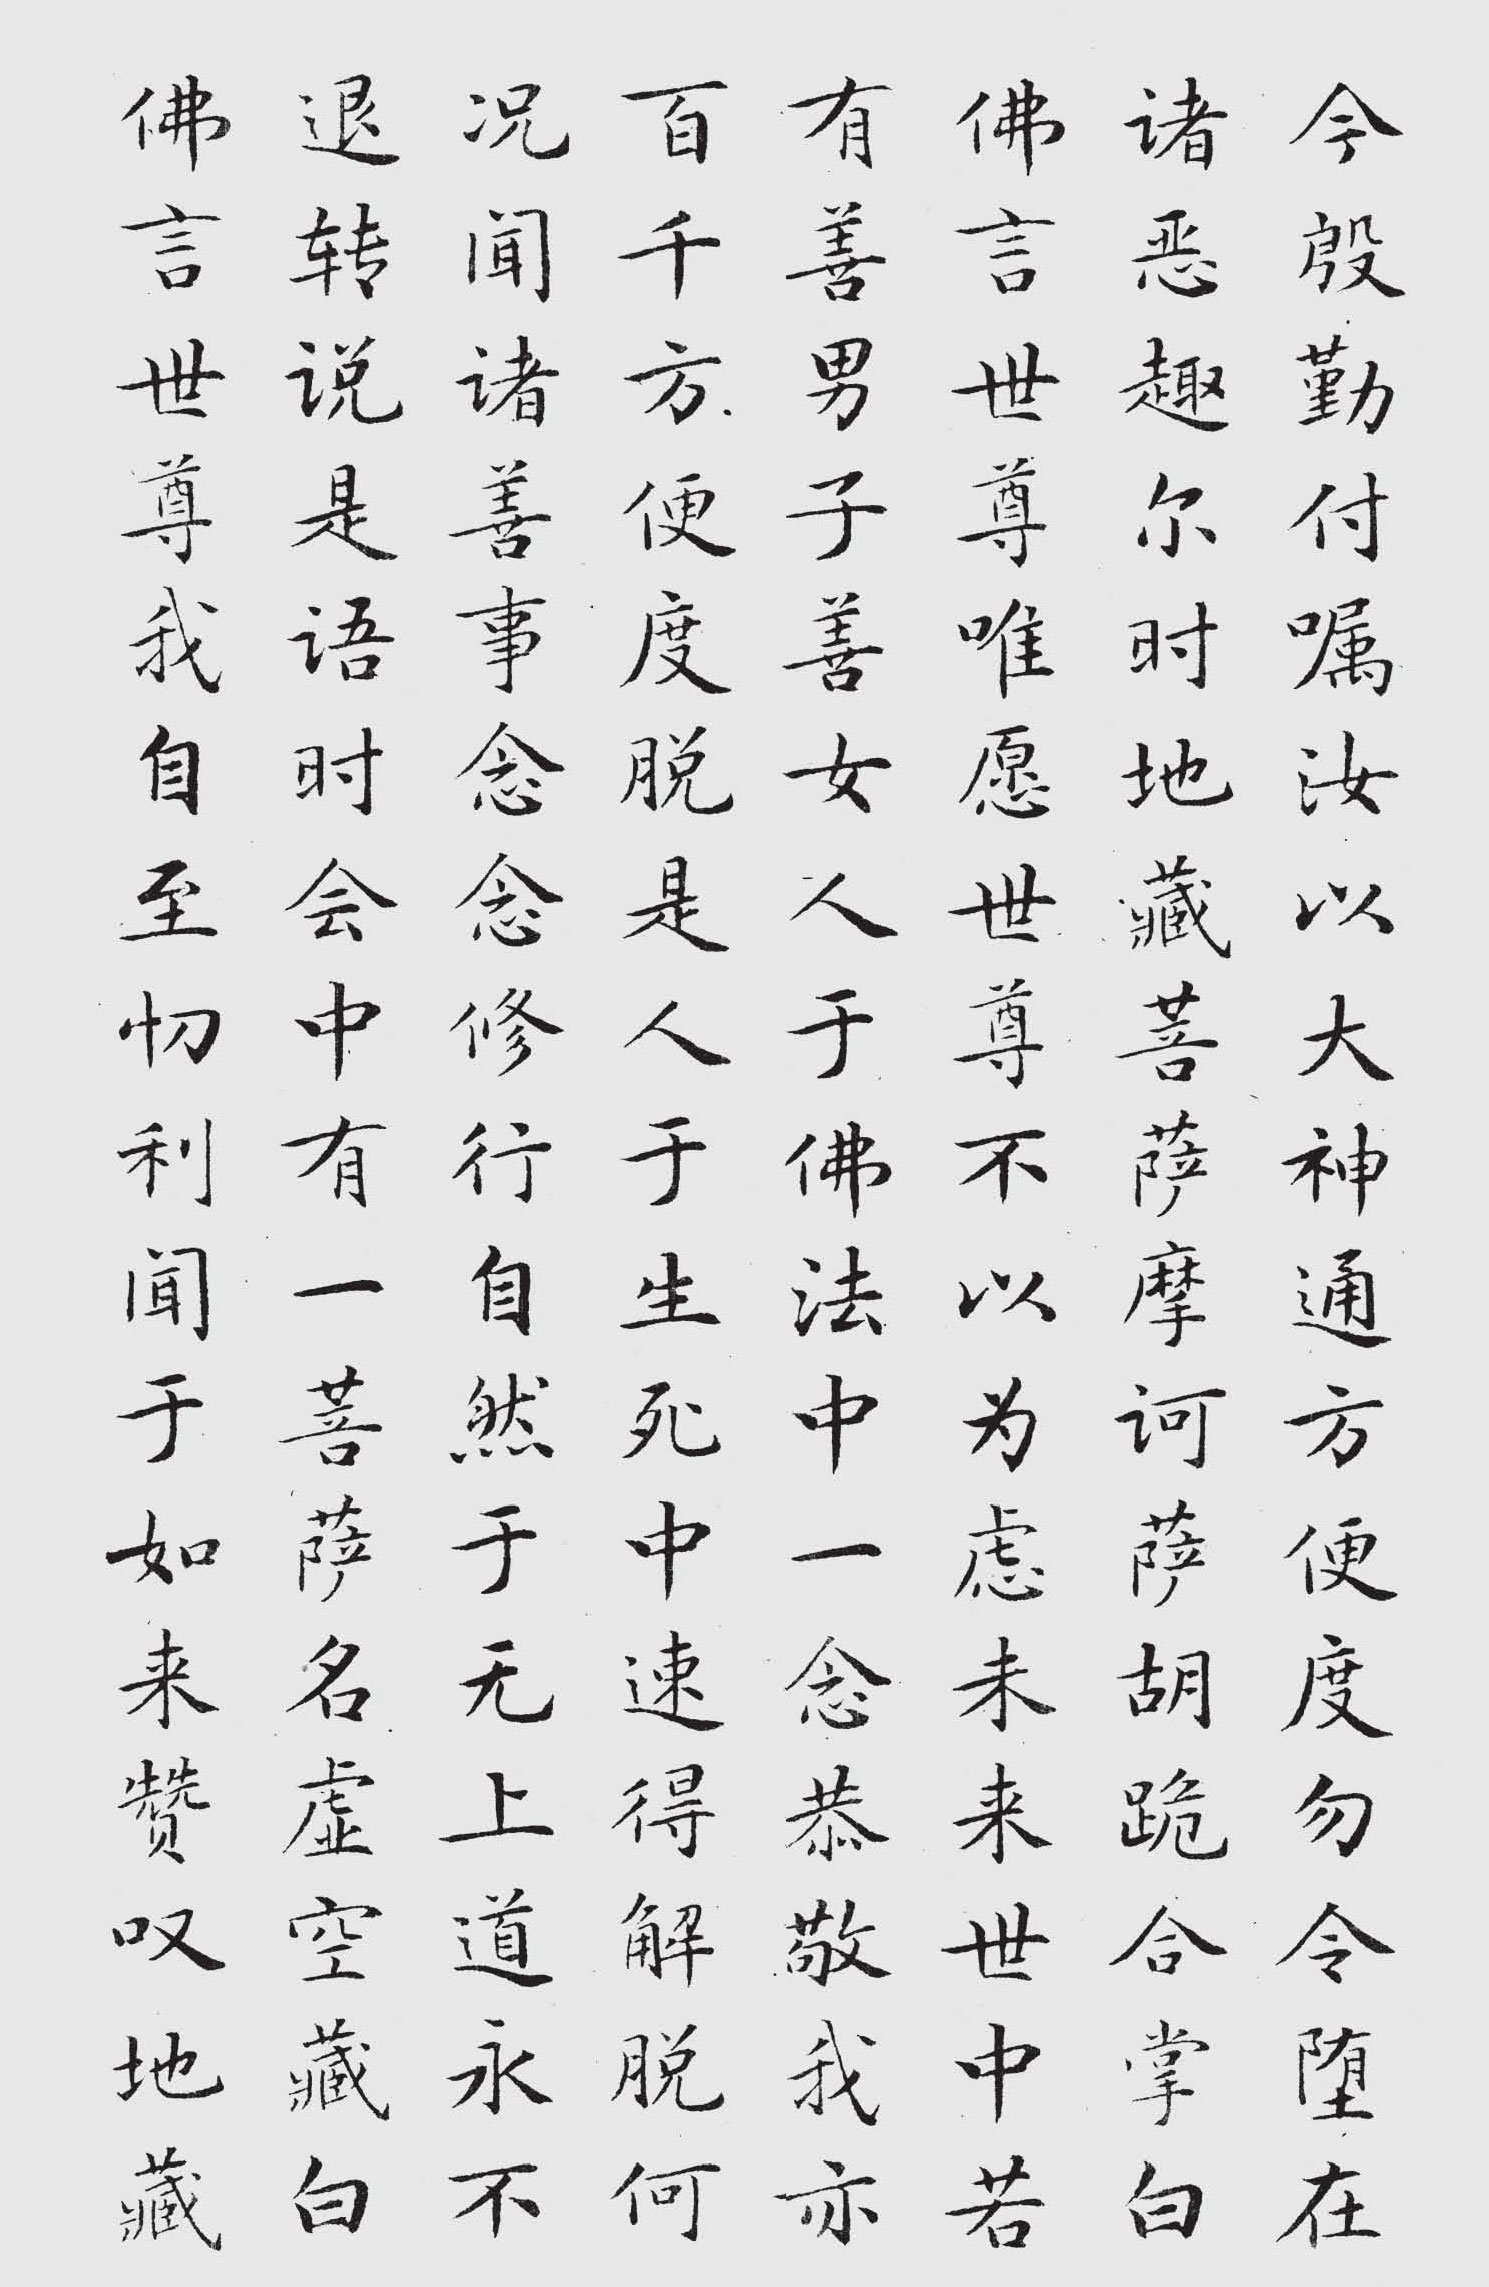 今殷勤付嘱汝以大神通方便度勿令堕在
诸恶趣尔时地藏菩萨摩诃萨胡跪合掌白
佛言世尊唯愿世尊不以为虑未来世中若
有善男子善女人于佛法中一念恭敬我亦
百千方便度脱是人于生死中速得解脱何
况闻诸善事念念修行自然于无上道永不
退转说是语时会中有一菩萨名虚空藏白
佛言世尊我自至忉利闻于如来赞叹地藏